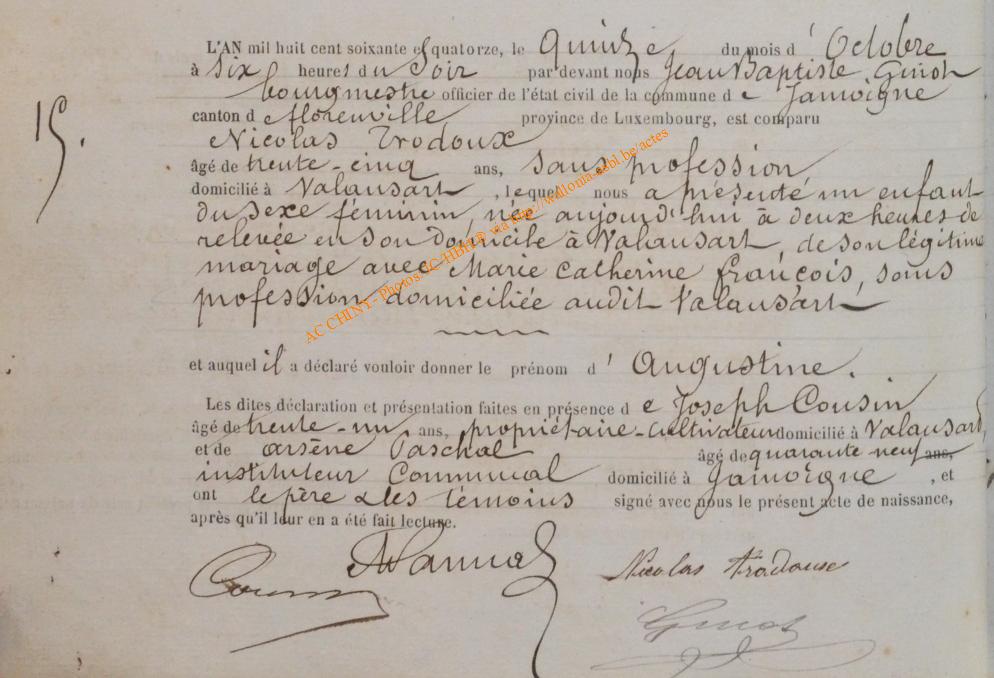 L'AN mil huit cent soixante et quatorze, le Quinze du mois d' Octobre
à six heures du Soir par devant nous Jean Baptiste Guiot
bourgmestre officier de l'état civil de la commune d e Jamoigne
15. canton d e florenville province de Luxembourg, est comparu
Nicolas Trodoux
âgé de trente-cinq ans, sans profession
domicilié à Valansart, lequel nous a présenté un enfant
du sexe féminin, née aujourd'hui à deux heures de
relevée en son domicile à Valansart, de son légitime
mariage avec Marie Catherine françois, sans
profession, domiciliée audit Valansart
et auquel il a déclaré vouloir donner le prénom d' Augustine.
Les dites déclaration et présentation faites en présence d e Joseph Cousin
âgé de trente-un ans, propriétaire-cultivateur domicilié à Valansart,
et de arsène Paschal âgé de quarante neuf ans,
instituteur Communal domicilié à Jamoigne, et
ont le père & les témoins signé avec nous le présent acte de naissance,
après qu'il leur en a été fait lecture.
Cousin Nicolas trodoux
Guiot
AC CHINY - Photos: AC-HBH® via http://wallonia-asbl.be/actes